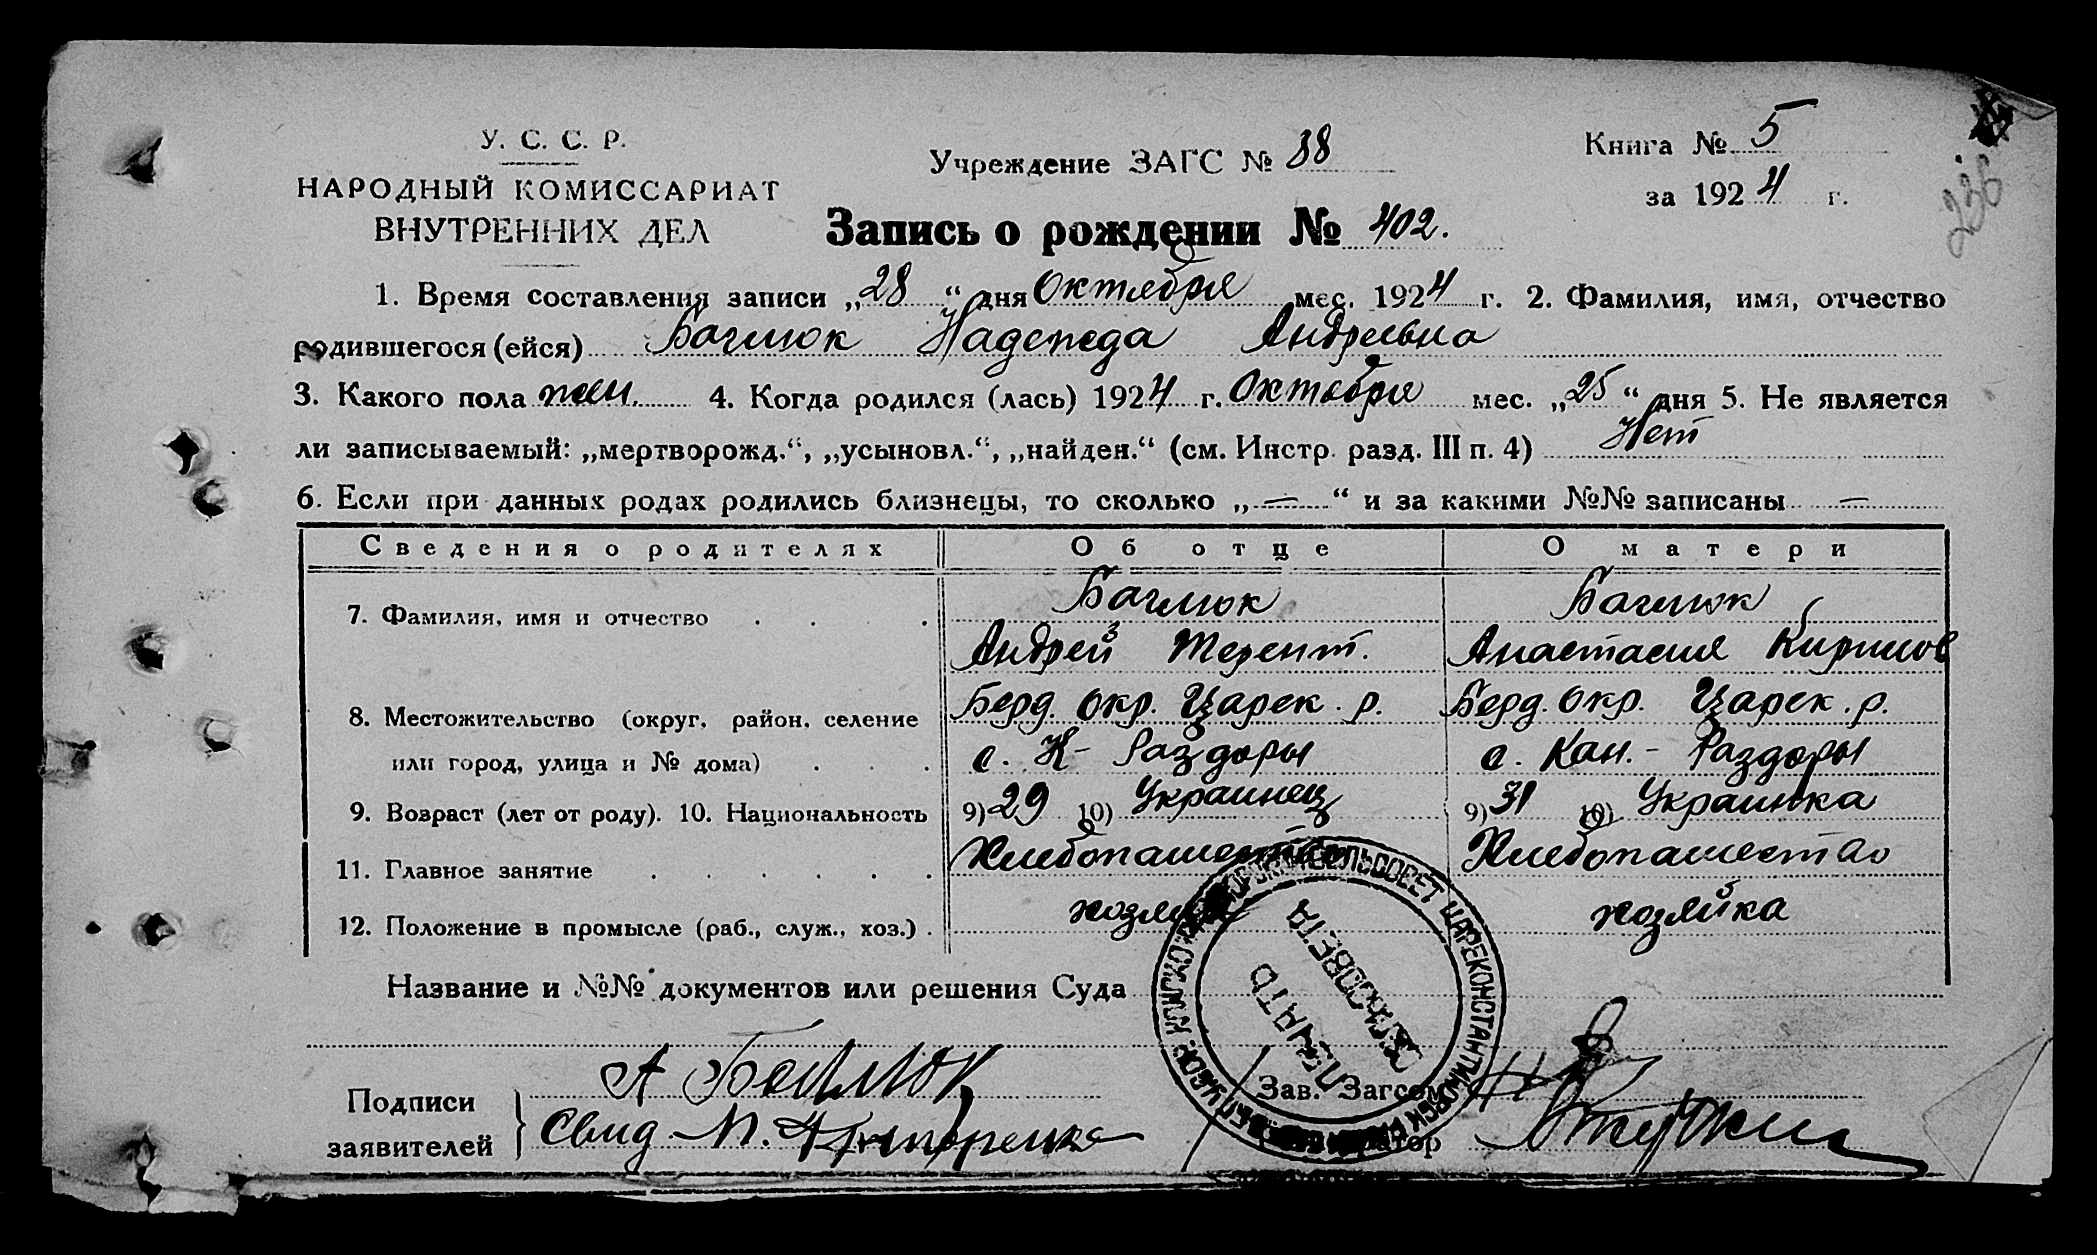 У. С. С. Р.
НАРОДНЫЙ КОМИССАРИАТ
ВНУТРЕННИХ ДЕЛ
Учреждение ЗАГС № 38
Книга № 5
за 1924 г.
236
Запись о рождении № 402.
1. Время составления записи „28“ дня Октября мес. 1924 г. 2. Фамилия, имя, отчество
родившегося (ейся) Баглюк Надежда Андреевна
3. Какого пола жен. 4. Когда родился (лась) 1924 г. Октября мес. „25“ дня 5. Не является
ли записываемый: „мертворожд.“, „усыновл.“, „найден.“ (см. Инстр. разд. III п. 4) Нет
6. Если при данных родах родились близнецы, то сколько „—“ и за какими №№ записаны —
Сведения о родителях Об отце О матери
7. Фамилия, имя и отчество Баглюк Баглюк
Андрей Терент. Анастасия Кирилов
8. Местожительство (округ, район, селение Берд. окр. Царек. р. Берд. окр. Царек. р.
или город, улица и № дома) с. К- Раздоры с. Кам.- Раздоры
9. Возраст (лет от роду). 10. Национальность 9) 29 10) Украинец 9) 31 10) Украинка
11. Главное занятие Хлебопашество Хлебопашество
12. Положение в промысле (раб., служ., хоз.) хозяин хозяйка
Название и №№ документов или решения Суда
СЕЛЬСОВЕТ ЦАРЕКОНСТАНТИНОВСК
ПЕЧАТЬ
СЕЛЬСОВЕТА
Подписи
заявителей
А Баглюк
Свид М.
Зав. Загсом